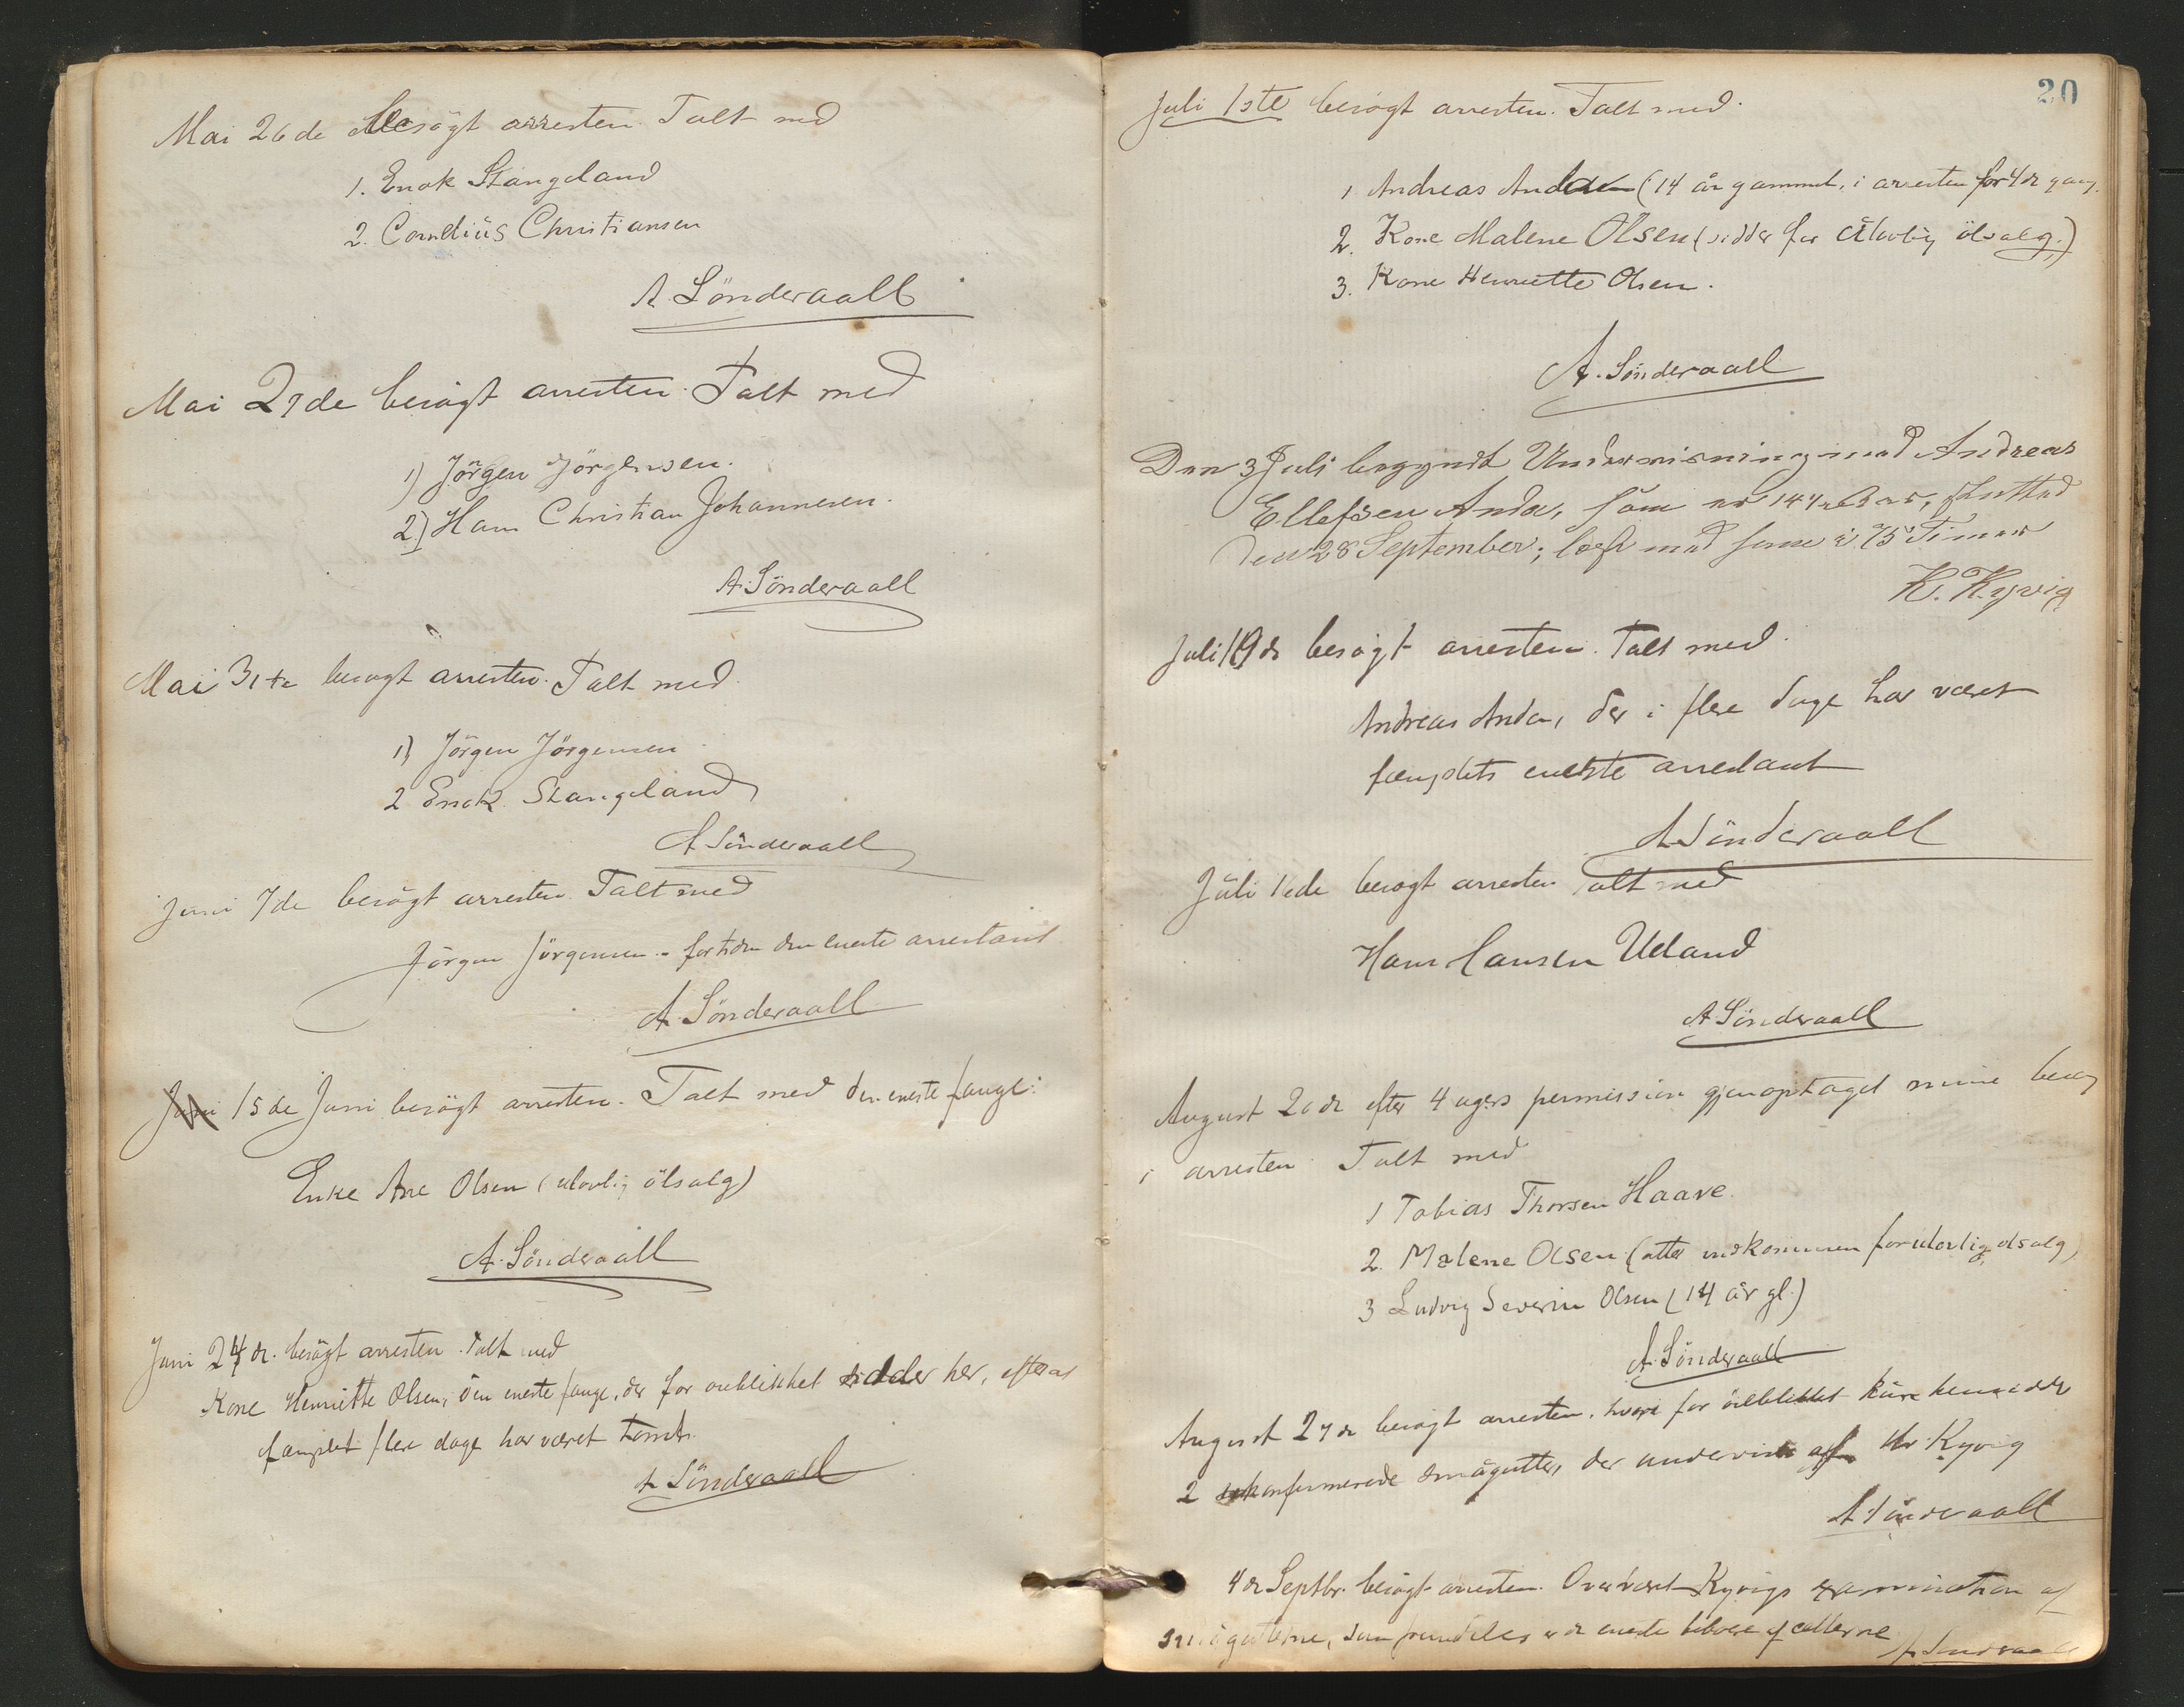 Mai 26de besögt arresten. Talt med
1. Enok Stangeland
2. Cornelius Christiansen
A. Sönderaall
Mai 27de besögt arresten. Talt med
1) Jörgen Jörgensen.
2) Hans Christian Johannesen.
A. Sönderaall
Mai 31te besögt arresten. Talt med
1) Jörgen Jörgensen
2 Enok Stangeland
A Sönderaall
Juni 7de besögt arresten. Talt med
Jörgen Jörgensen - fortiden den eneste arrestant
A. Sönderaall
Juni 15de Juni besögt arresten. Talt med den eneste fange:
Enke Ane Olsen (ulovlig ölsalg)
A. Sönderaall
Juni 24de. besögt arresten. Talt med
Kone Henriette Olsen, den eneste fange, der for øieblikket sidder her, efterat
fængslet flere dage har været tomt.
A Sönderaall
20
Juli 1ste besögt arresten. Talt med.
1 Andreas Anda (14 år gammel, i arresten for 4de gang.
2. Kone Malene Olsen (sidder for ulovlig ölsalg.)
3. Kone Henriette Olsen.
A. Sönderaall
Den 3 Juli begyndt Undervisning med Andreas
Ellefsen Anda, som er 14 Aar, slutted
den 28 September; læst med ham i 75 Timer
K. Kyvig
Juli 10de besögt arresten. Talt med
Andreas Anda, der i flere dage har været
fængslets eneste arrestant
A Sönderaall
Juli 16de besögt arresten Talt med
Hans Hansen Ueland
A Sönderaall
August 20de efter 4 ugers permission gjenoptaget mine besøg
i arresten. Talt med
1 Tobias Thorsen Haave.
2. Malene Olsen (atter indkommen for ulovlig ølsalg)
3 Ludvig Severin Olsen (14 år gl.)
A. Sönderaall
August 27de besögt arresten, hvori for öieblikket kun hensidder
2 ukonfirmerede smågutter, der undervises af Hr. Kyvig
A Sönderaall
4de Septbr. besögt arresten. Overværet Kyvigs examination af
smågutterne, som fremdeles er de eneste beboere af cellerne
A Sönderaall